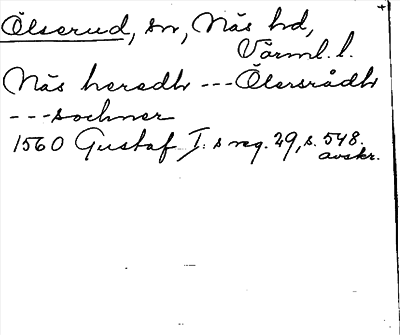 Ölserud, sn, Näs hd,
Värml. l.
Näs heredh --- Ölersrådh
---sochner
1560 Gustaf I:s reg. 29, s. 548.
avskr.